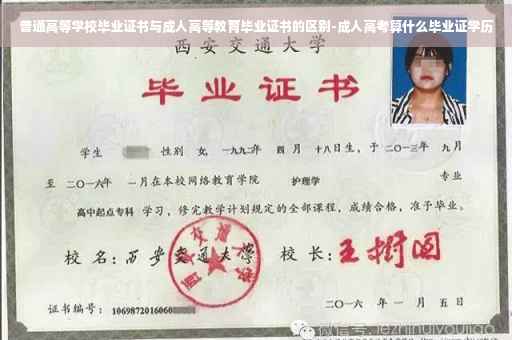 普通高等学校毕业证书与成人高等教育毕业证书的区别-成人高考算什么毕业证学历
西安交通大学
毕业证书
学生 性别 女，一九九二年 四月 十八日生，于二〇一三年 九月
至 二〇一六年 一月在本校网络教育学院 护理学 专业
高中起点专科 学习，修完教学计划规定的全部课程，成绩合格，准予毕业。
校 名：西安交通大学 校 长：王树国
西安交通大学
证书编号：1069872016060 二〇一六 年 一 月 五 日
微信号: jiezhihuiyoujiao